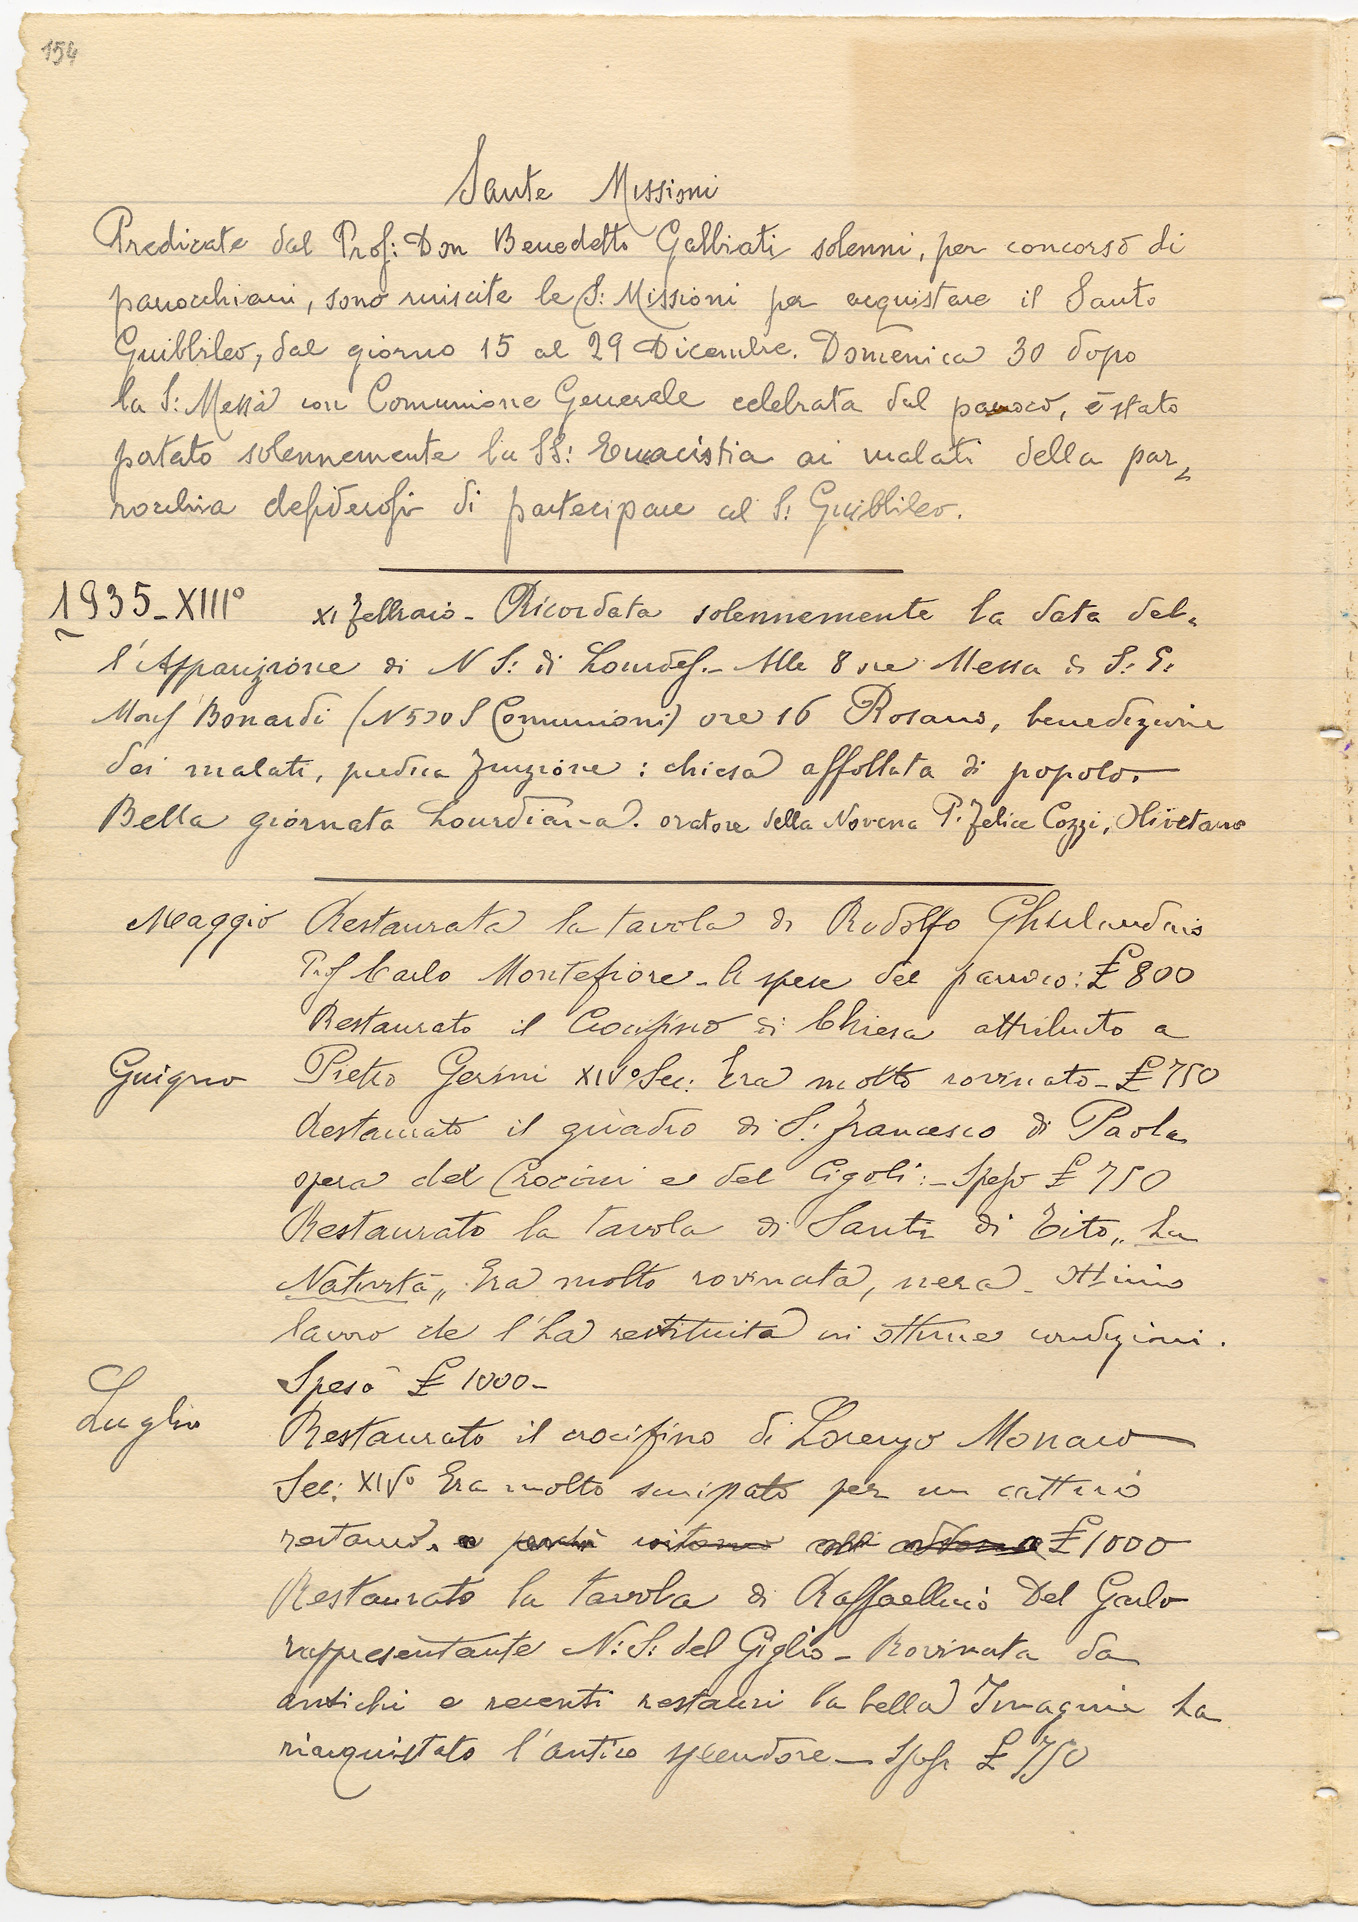 154
Sante Missioni
Predicate dal Prof: Don Benedetto Galbiati solenni, per concorso di
parrocchiani, sono riuscite le S: Missioni per acquistare il Santo
Guibbileo, dal giorno 15 al 29 Dicembre. Domenica 30 dopo
la S: Messa con Comunione Generale celebrata dal parroco, è stato
portato solennemente la SS: Eucaristia ai malati della par-
rocchia desiderosi di partecipare al S: Guibbileo.
1935-XIII° XI Febbraio - Ricordata solennemente la data del-
l'Apparizione di N S: di Lourdes. - Alle 8 ore Messa di S: E:
Mons Bonardi (N 520 Comunioni) ore 16 Rosario, benedizione
dei malati, predica funzione : chiesa affollata di popolo. -
Bella giornata Lourdiana. oratore della Novena P. Felice Cozzi, Olivetano
Maggio Restaurata la tavola di Rodolfo Ghirlandaio
Prof Carlo Montefiore - A spese del parroco: £ 800
Restaurato il Crocifisso di Chiesa attribuito a
Guigno Pietro Gerini XIV° Sec: Era molto rovinato - £ 750
Restaurato il quadro di S: Francesco di Paola
opera del Crocini e del Cigoli: - Speso £ 750
Restaurato la tavola di Santi di Tito „ La
Natività „ Era molto rovinata, nera - ottimo
lavoro che l'ha restituita in ottime condizioni.
Speso £ 1000 -
Luglio Restaurato il crocifisso di Lorenzo Monaco
Sec: XIV° Era molto sciupato per un cattivo
restauro. £ 1000
Restaurato la tavola di Raffaellino Del Garbo
rappresentante N: S: del Giglio - Rovinata da
antichi e recenti restauri la bella Imagine ha
riacquistato l'antico splendore - Speso £ 750